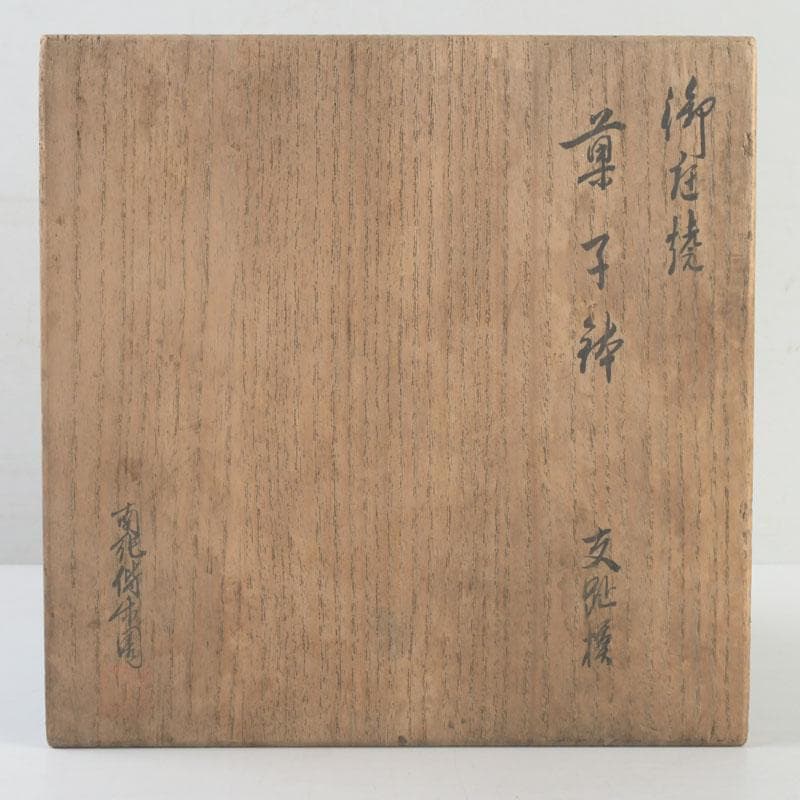 御庭焼
菓子鉢 交趾模
南紀偕楽園